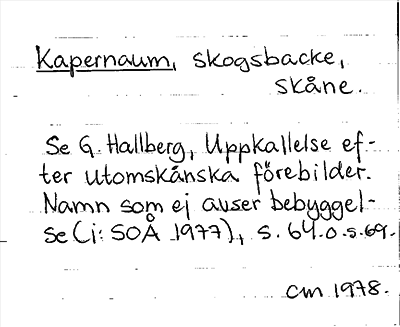 Kapernaum, skogsbacke,
Skåne.
Se G. Hallberg, Uppkallelse ef-
ter utomskånska förebilder.
Namn som ej avser bebyggel-
se (i: SOÅ 1977), s. 64 o. s. 69.
CM 1978.